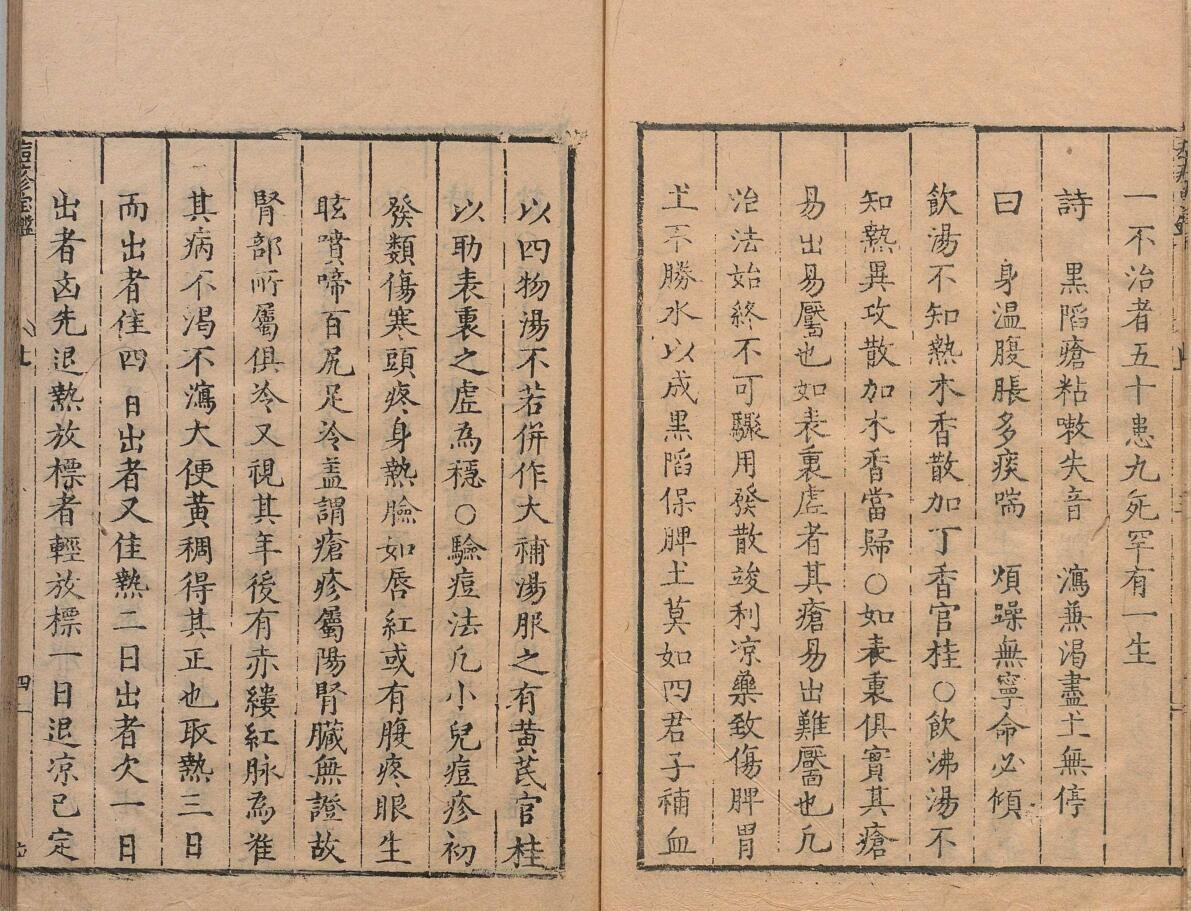 一不治者五十患九死罕有一生
詩　黒陷瘡粘嗽失音　瀉兼渴盡土無停
曰　身温腹脹多痰喘　煩躁無寧命必傾
飲湯不知熱木香散加丁香官桂○飲沸湯不
知熱異攻散加木香當歸○如表裏俱實其瘡
易出易靨也如表裏虗者其瘡易出難靨也凢
治法始終不可驟用發散竣利凉藥致傷脾胃
土不勝水以成黒陷保脾土莫如四君子補血
以四物湯不若併作大補湯服之有黄芪官桂
以助表裏之虛為穩○驗痘法凢小兒痘疹初
發類傷寒頭疼身熱臉如唇紅或有腹疼眼生
眩噴啼百尻足冷盖謂瘡疹屬陽腎臟無證故
腎部所屬俱冷又視其年後有赤縷紅脉為准
其病不渴不瀉大便黄稠得其正也取熱三日
而出者佳四日出者又佳熱二日出者次一日
出者凶先退熱放標者輕放標一日退凉已定
痘疹寳鑑